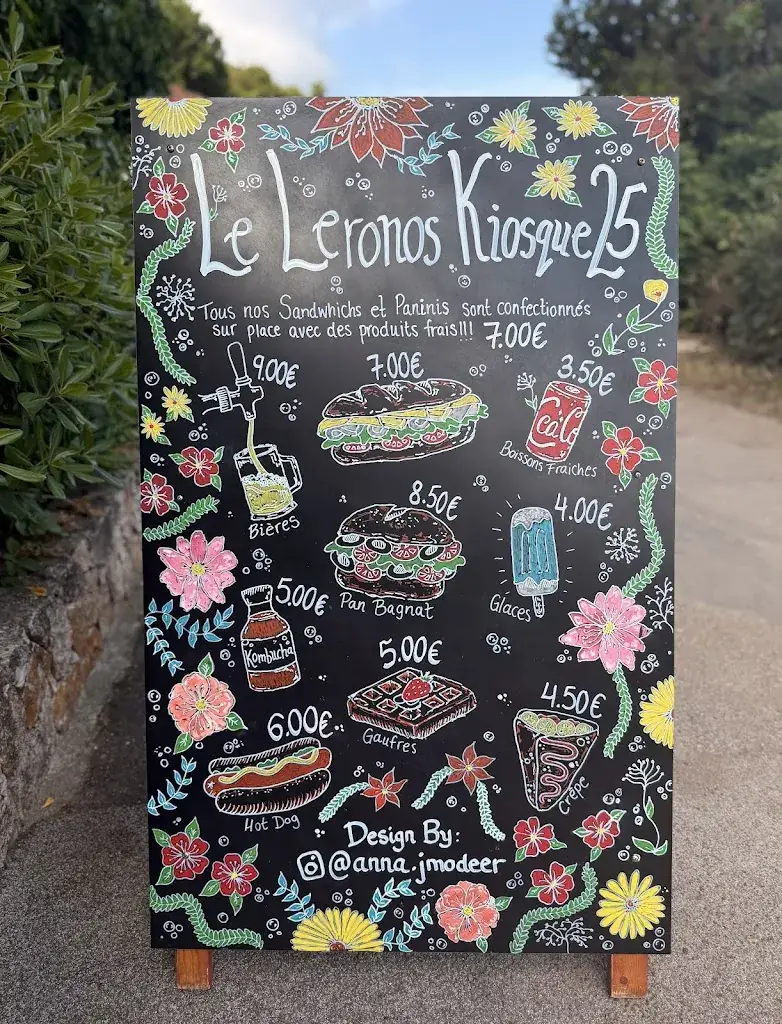 Le Leronos Kiosque 25
Tous nos Sandwhichs et Paninis sont confectionnés
sur place avec des produits frais!!! 7.00€
9.00€
Bières
7.00€
3.50€
Coca'Cola
Boissons Fraiches
8.50€
Pan Bagnat
4.00€
Glaces
5.00€
Kombucha
5.00€
Gaufres
6.00€
Hot Dog
4.50€
Crêpe
Design By:
@anna.jmodeer